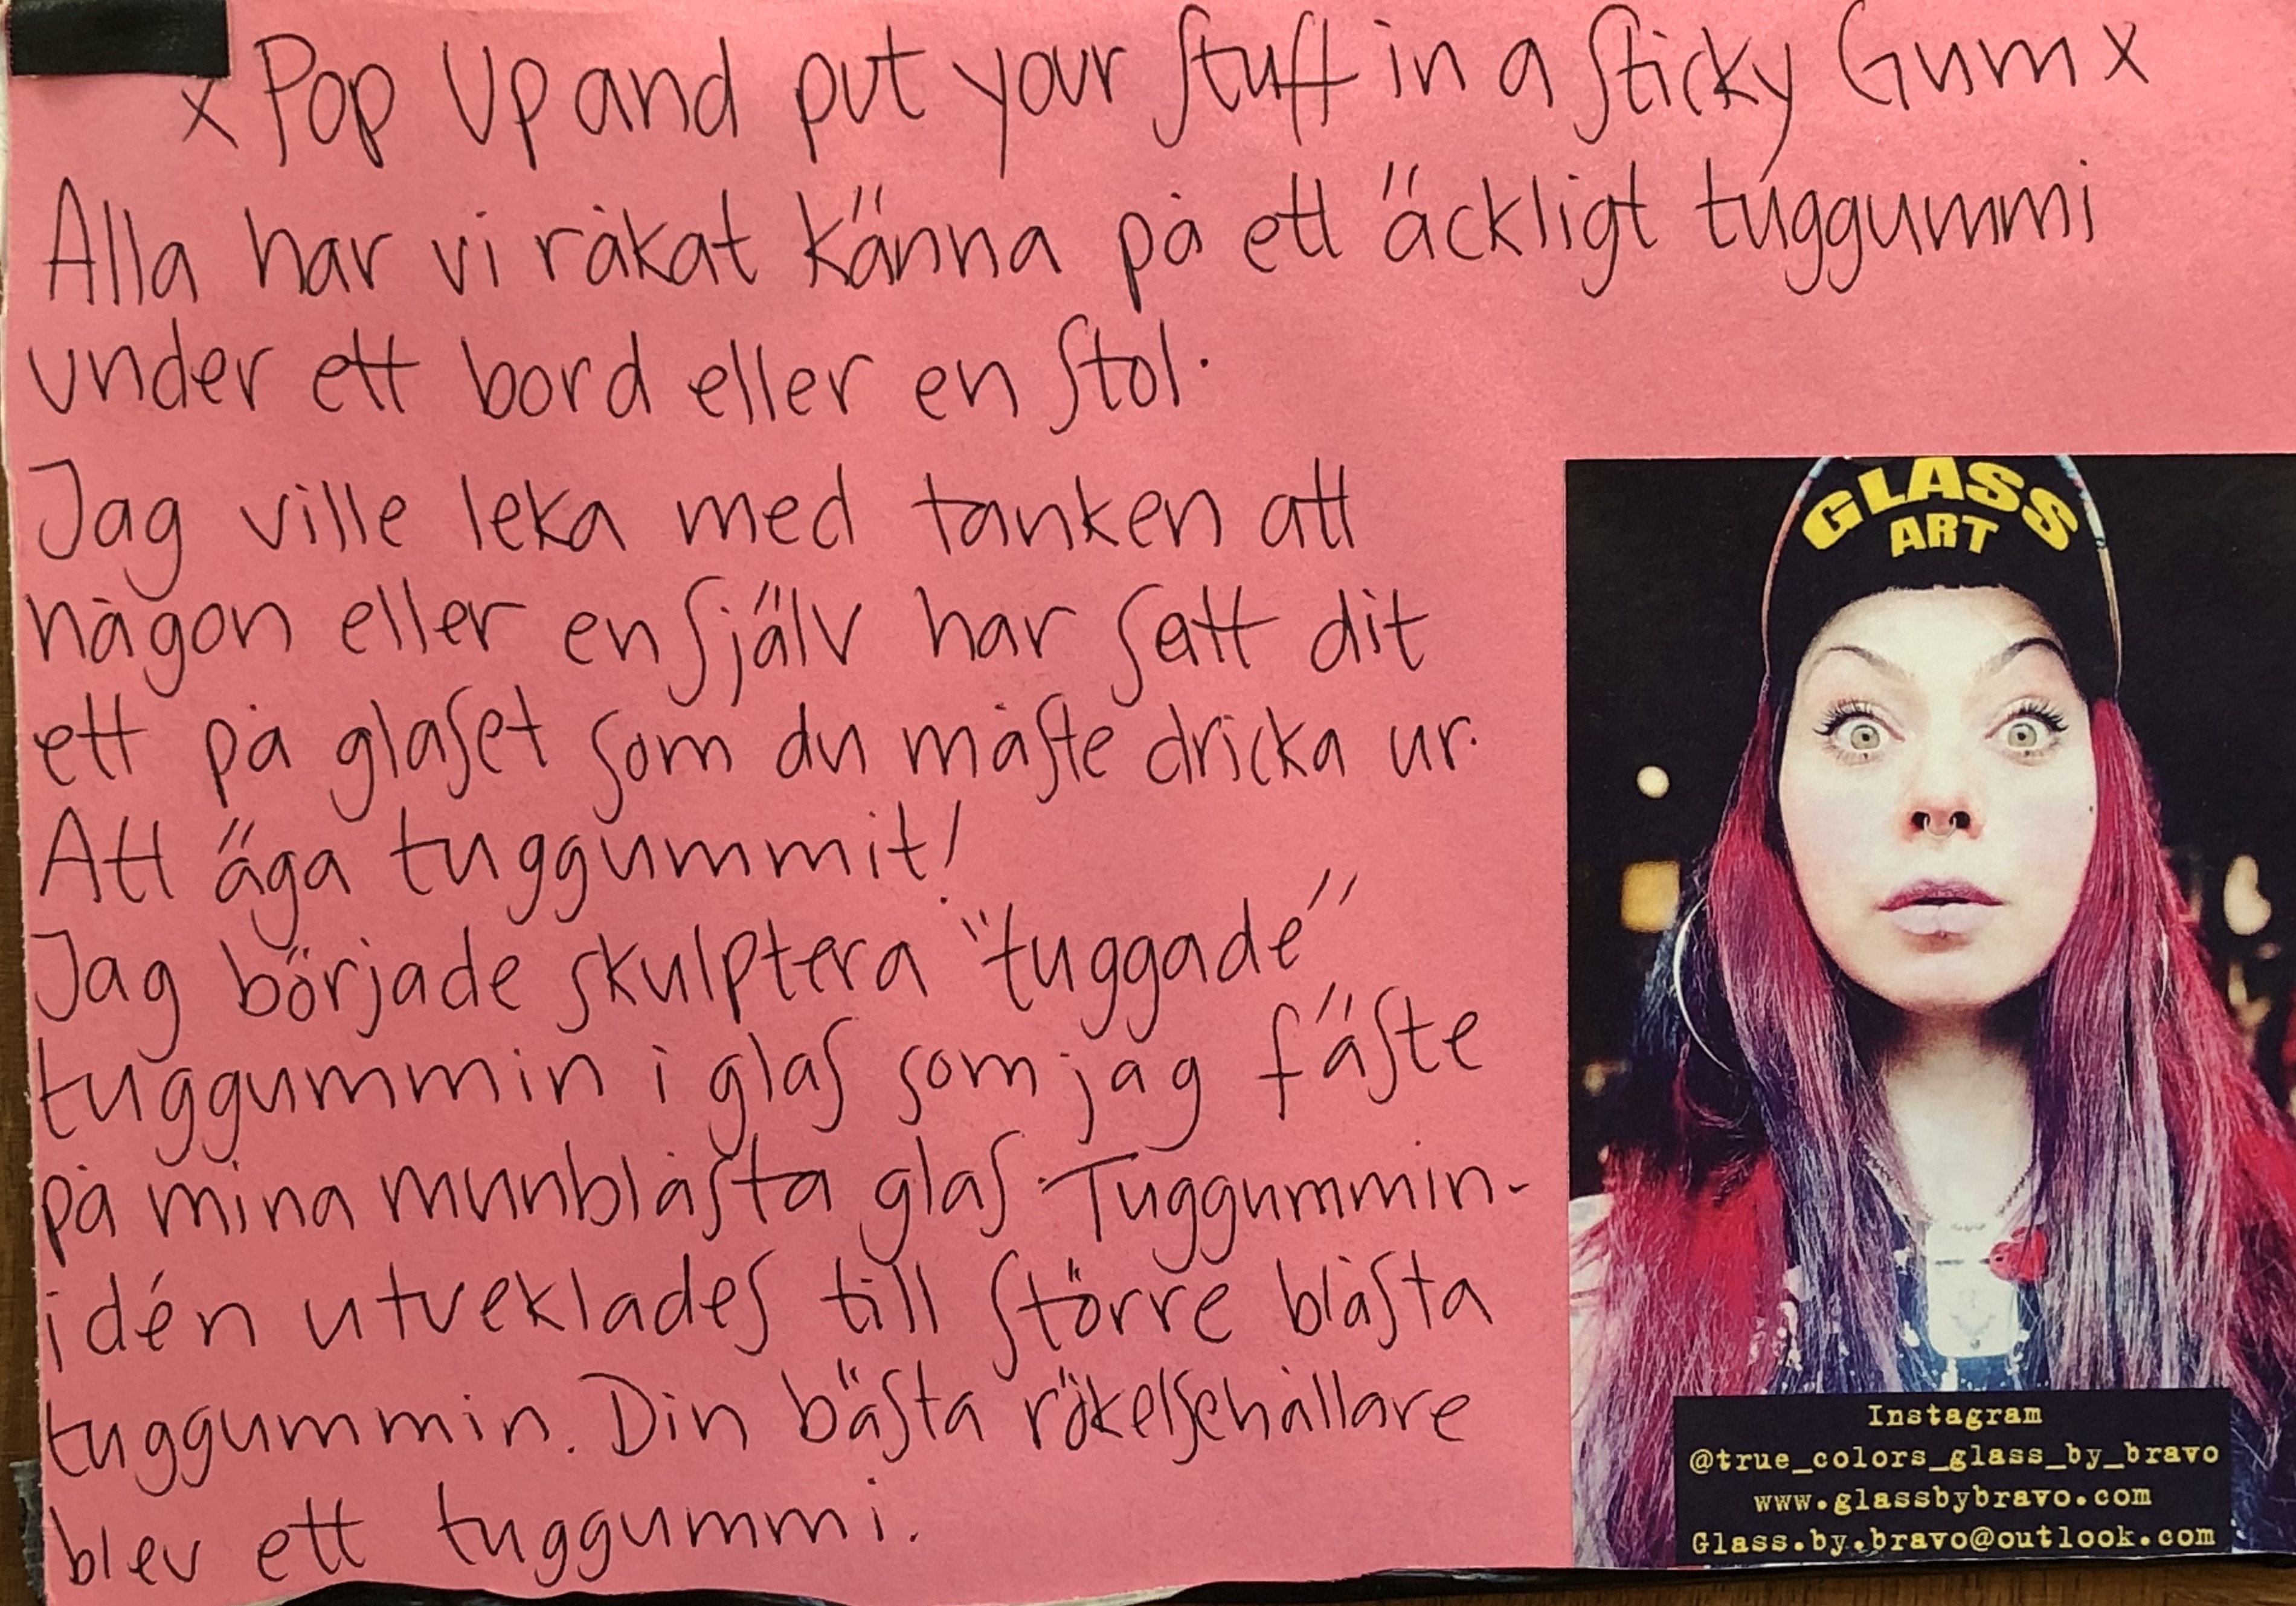 x Pop Up and put your stuff in a sticky Gum x
Alla har vi råkat känna på ett äckligt tuggummi
under ett bord eller en stol.
Jag ville leka med tanken att
någon eller en själv har satt dit
ett på glaset som du måste dricka ur.
Att äga tuggummit!
Jag började skulptera "tuggade"
tuggummin i glas som jag fäste
på mina munblåsta glas. Tuggummin-
idén utveklades till större blåsta
tuggummin. Din bästa rökelsehållare
blev ett tuggummi.
GLASS
ART
Instagram
@true_colors_glass_by_bravo
www.glassbybravo.com
Glass.by.bravo@outlook.com